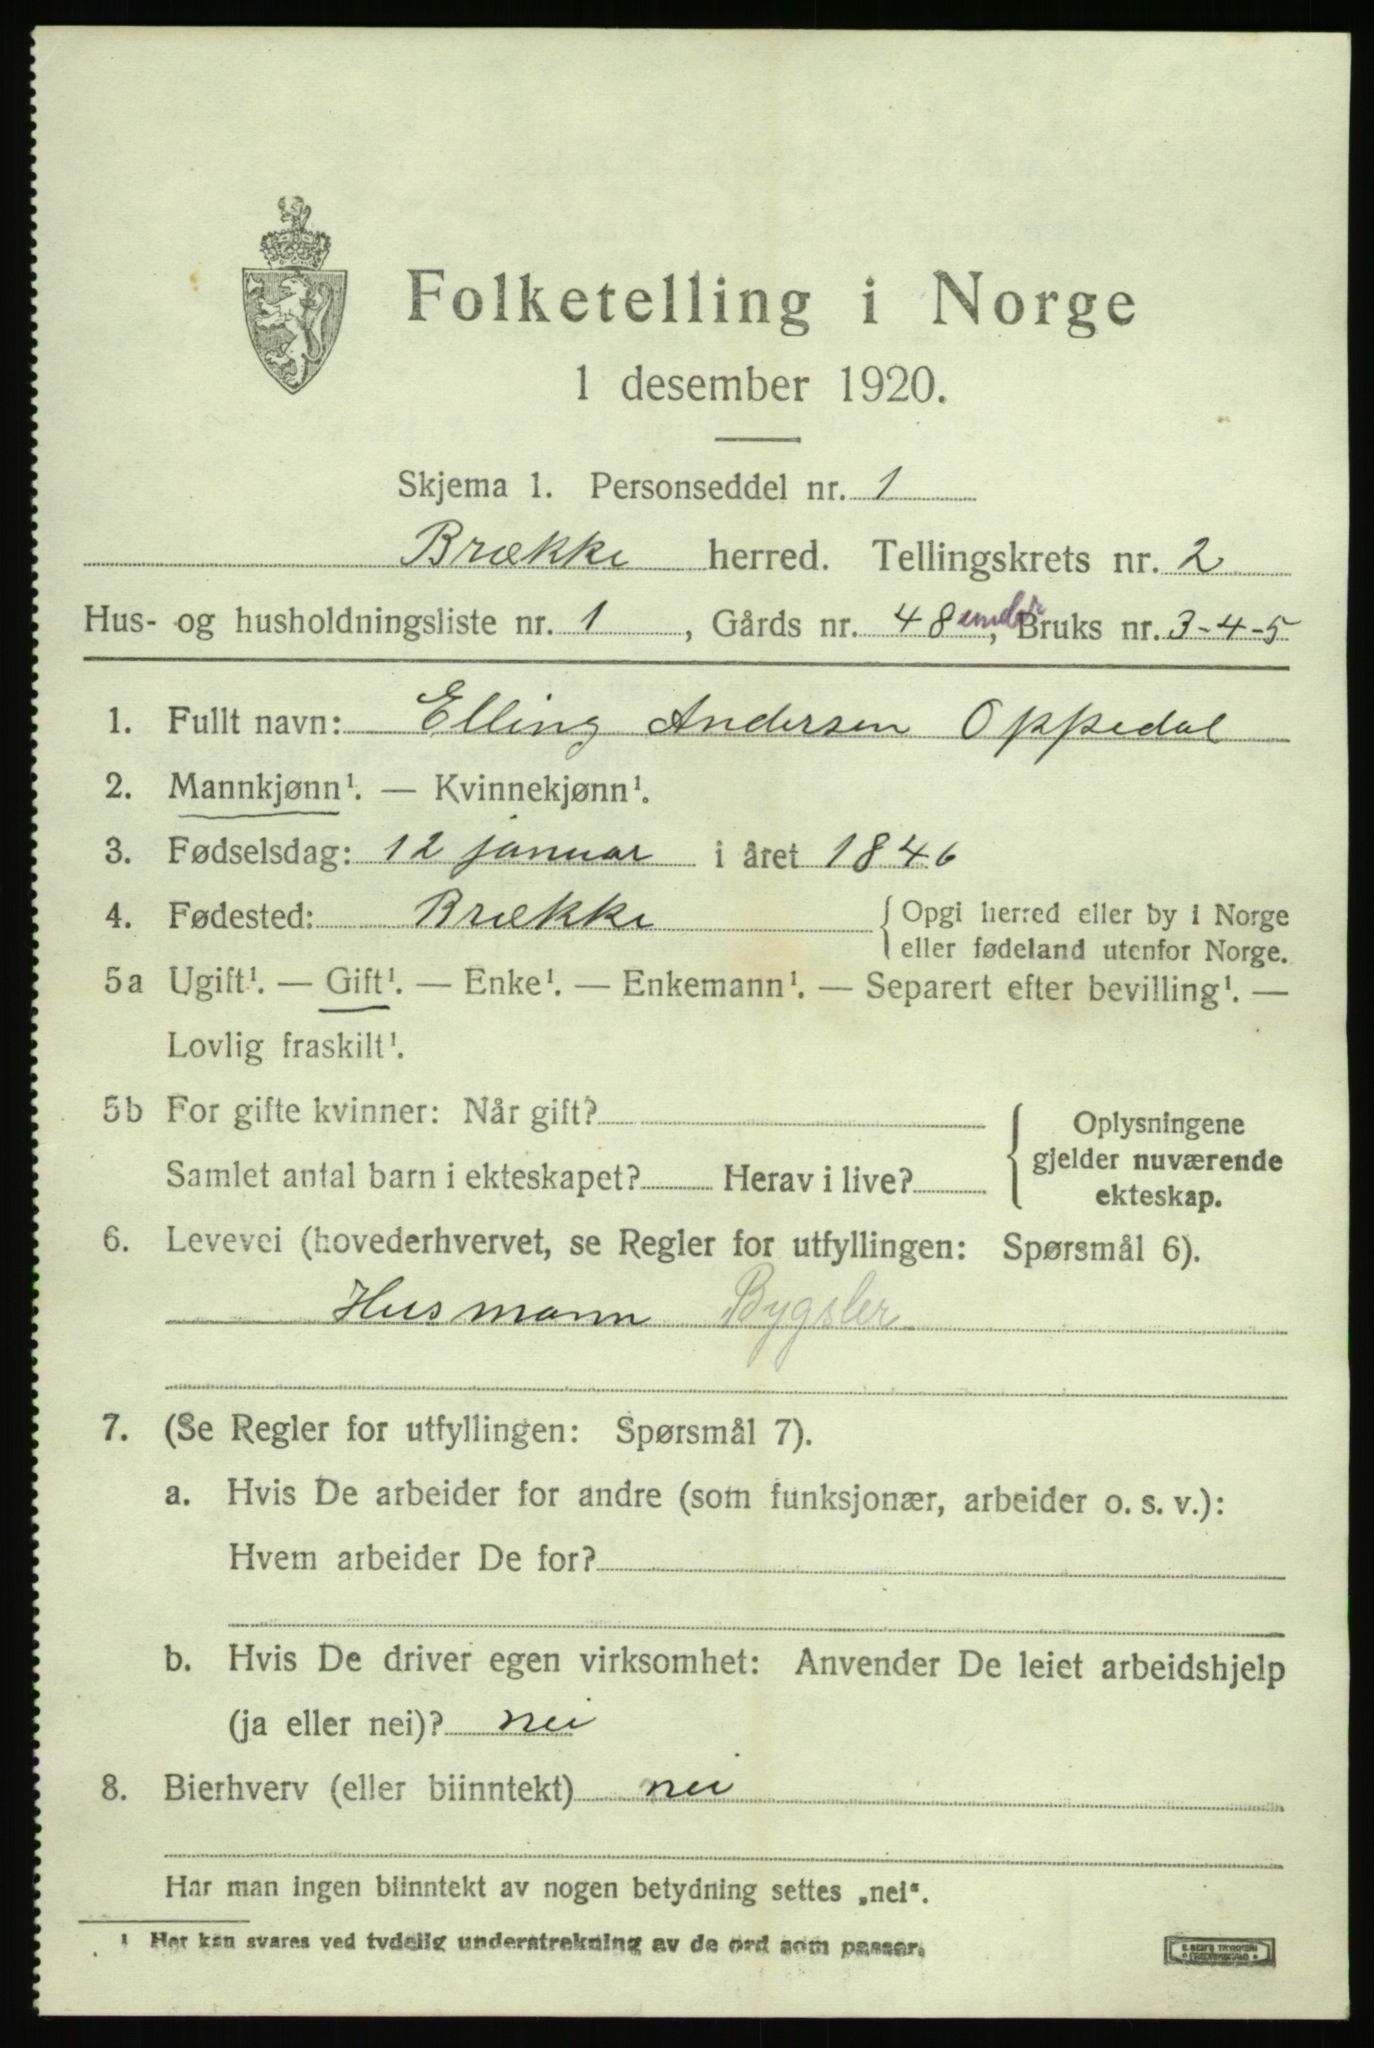 Folketelling i Norge
1 desember 1920.
Skjema 1. Personseddel nr. 1
Brække herred. Tellingskrets nr. 2
Hus- og husholdningsliste nr. 1, Gårds nr. 48 under, Bruks nr. 3-4-5
1. Fullt navn: Elling Andersen Oppedal
2. Mannkjønn¹. — Kvinnekjønn¹.
3. Fødselsdag: 12 januar i året 1846
4. Fødested: Brække { Opgi herred eller by i Norge
eller fødeland utenfor Norge.
5a Ugift¹. — Gift¹. — Enke¹. — Enkemann¹. — Separert efter bevilling¹. —
Lovlig fraskilt¹.
5b For gifte kvinner: Når gift?
Samlet antal barn i ekteskapet? Herav i live?
{ Oplysningene
gjelder nuværende
ekteskap.
6. Levevei (hovederhvervet, se Regler for utfyllingen: Spørsmål 6).
Husmann Bygsler
7. (Se Regler for utfyllingen: Spørsmål 7).
a. Hvis De arbeider for andre (som funksjonær, arbeider o. s. v.):
Hvem arbeider De for?
b. Hvis De driver egen virksomhet: Anvender De leiet arbeidshjelp
(ja eller nei)? nei
8. Bierhverv (eller biinntekt) nei
Har man ingen biinntekt av nogen betydning settes „nei".
¹ Her kan svares ved tydelig understrekning av de ord som passer.